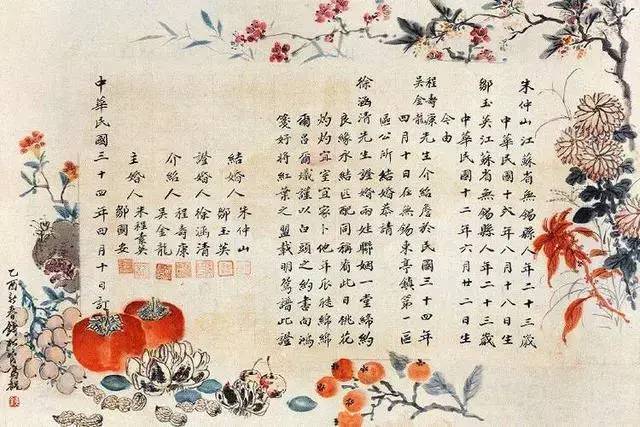 朱仲山江蘇省無錫縣人年二十三歲
中華民國十六年八月十八日生
鄒玉英江蘇省無錫縣人年二十三歲
中華民國十二年六月廿二日生
今由
程壽康
吳金龍
先生介紹詹於民國三十四年
四月十日在無錫東亭鎮第一區
區公所結婚恭請
徐涵清先生證婚兩姓聯姻一堂締約
良緣永結匹配同稱看此日桃花
灼灼宜室宜家卜他年瓜瓞綿綿
爾昌爾熾謹以白頭之約書向鴻
箋好將紅葉之盟載明鴛譜此證
結婚人 朱仲山
鄒玉英
證婚人 徐涵清
介紹人 程壽康
吳金龍
主婚人 朱程素英
鄒國安
中華民國三十四年四月十日訂
乙酉新春錢